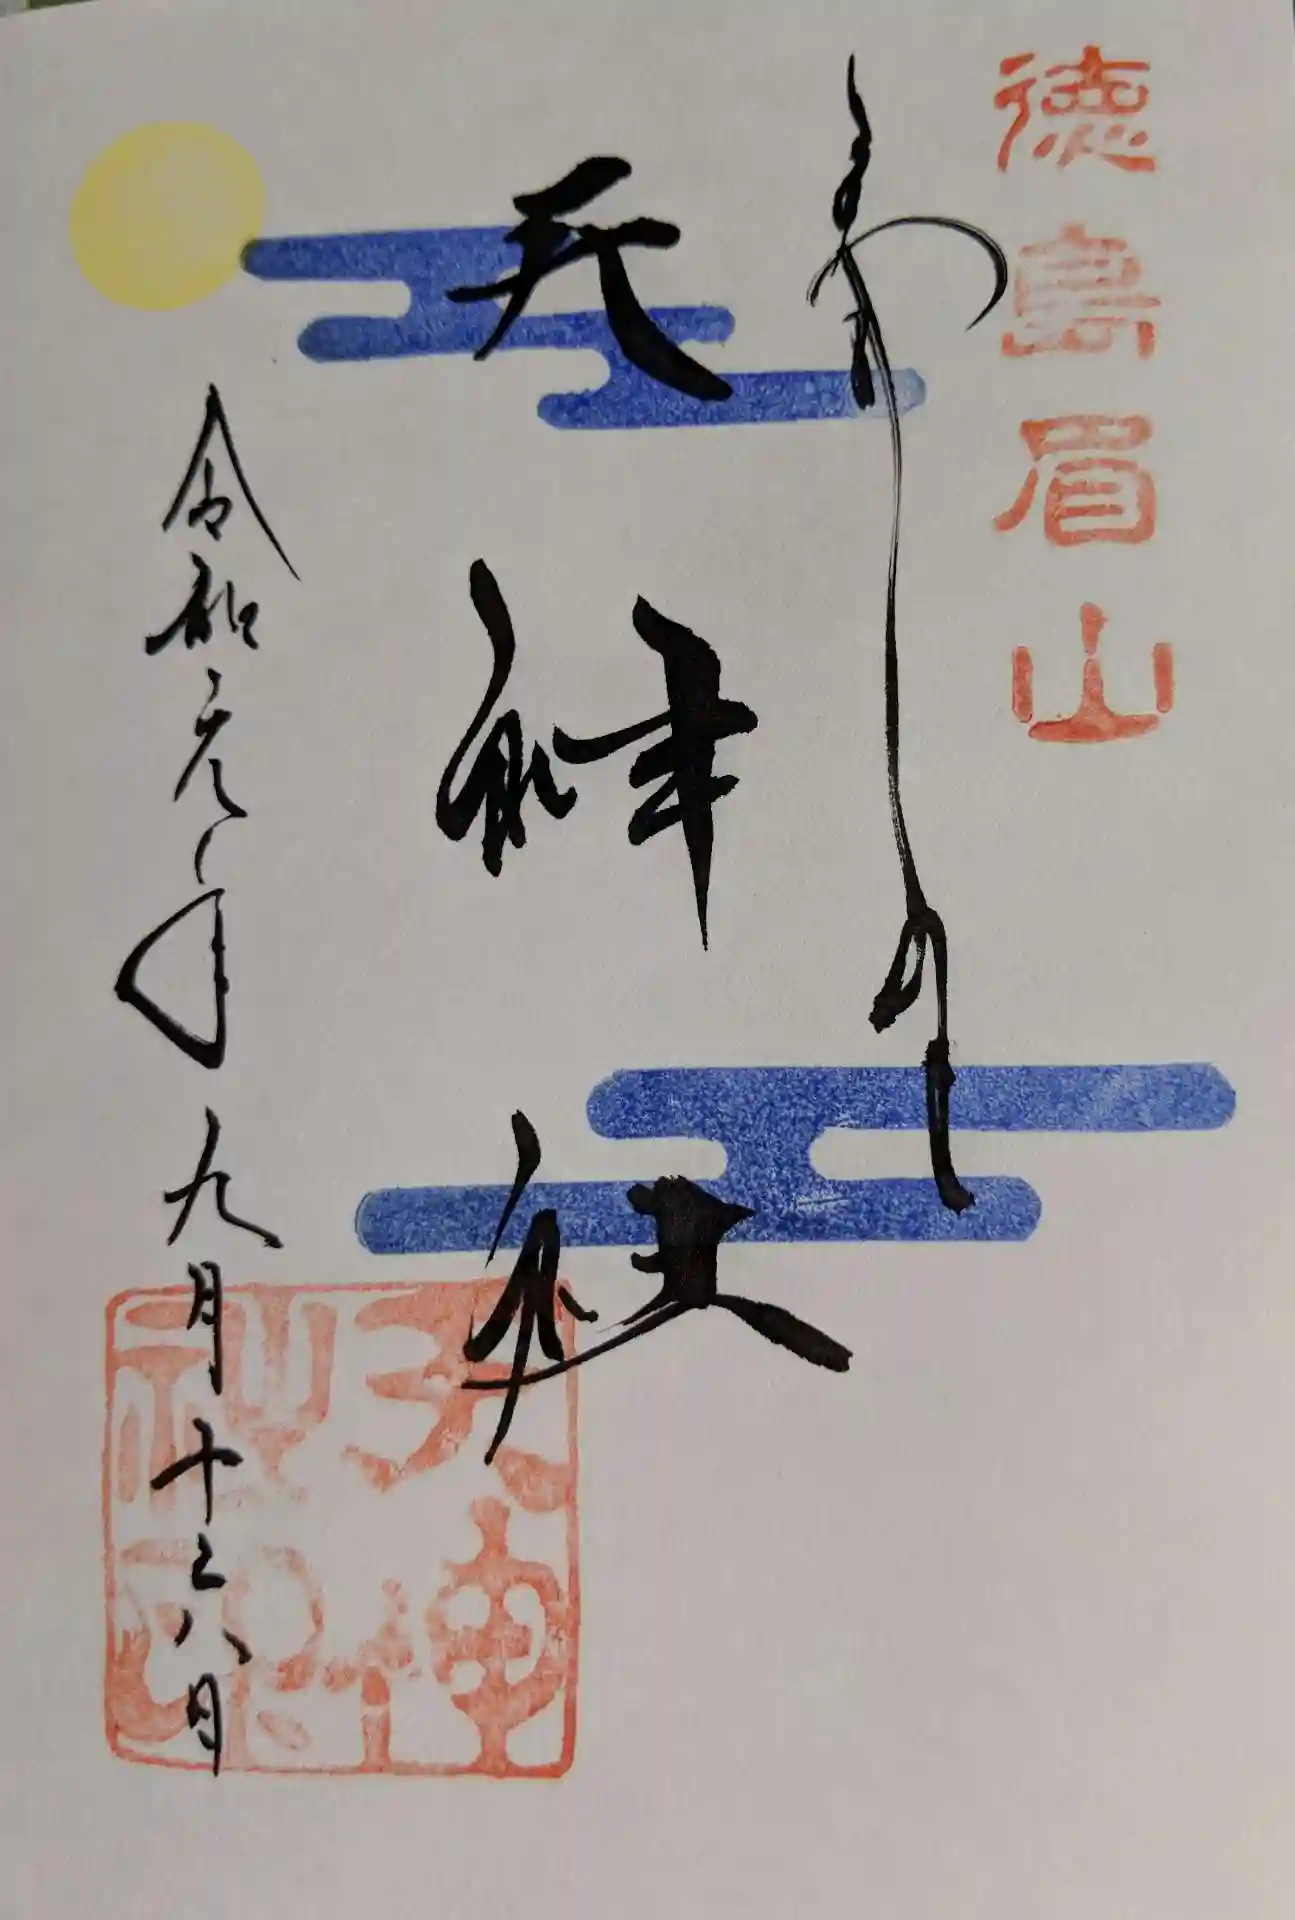 徳島眉山
奉拝
天神社
令和元年九月十六日
天神社印